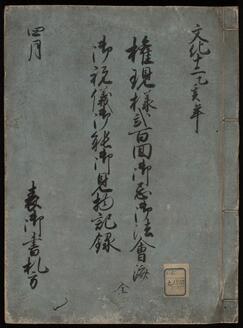 文化十二乙亥年
権現様弐百回御忌御法會済
御祝儀御能御見物記録
全
四月
表御書札方